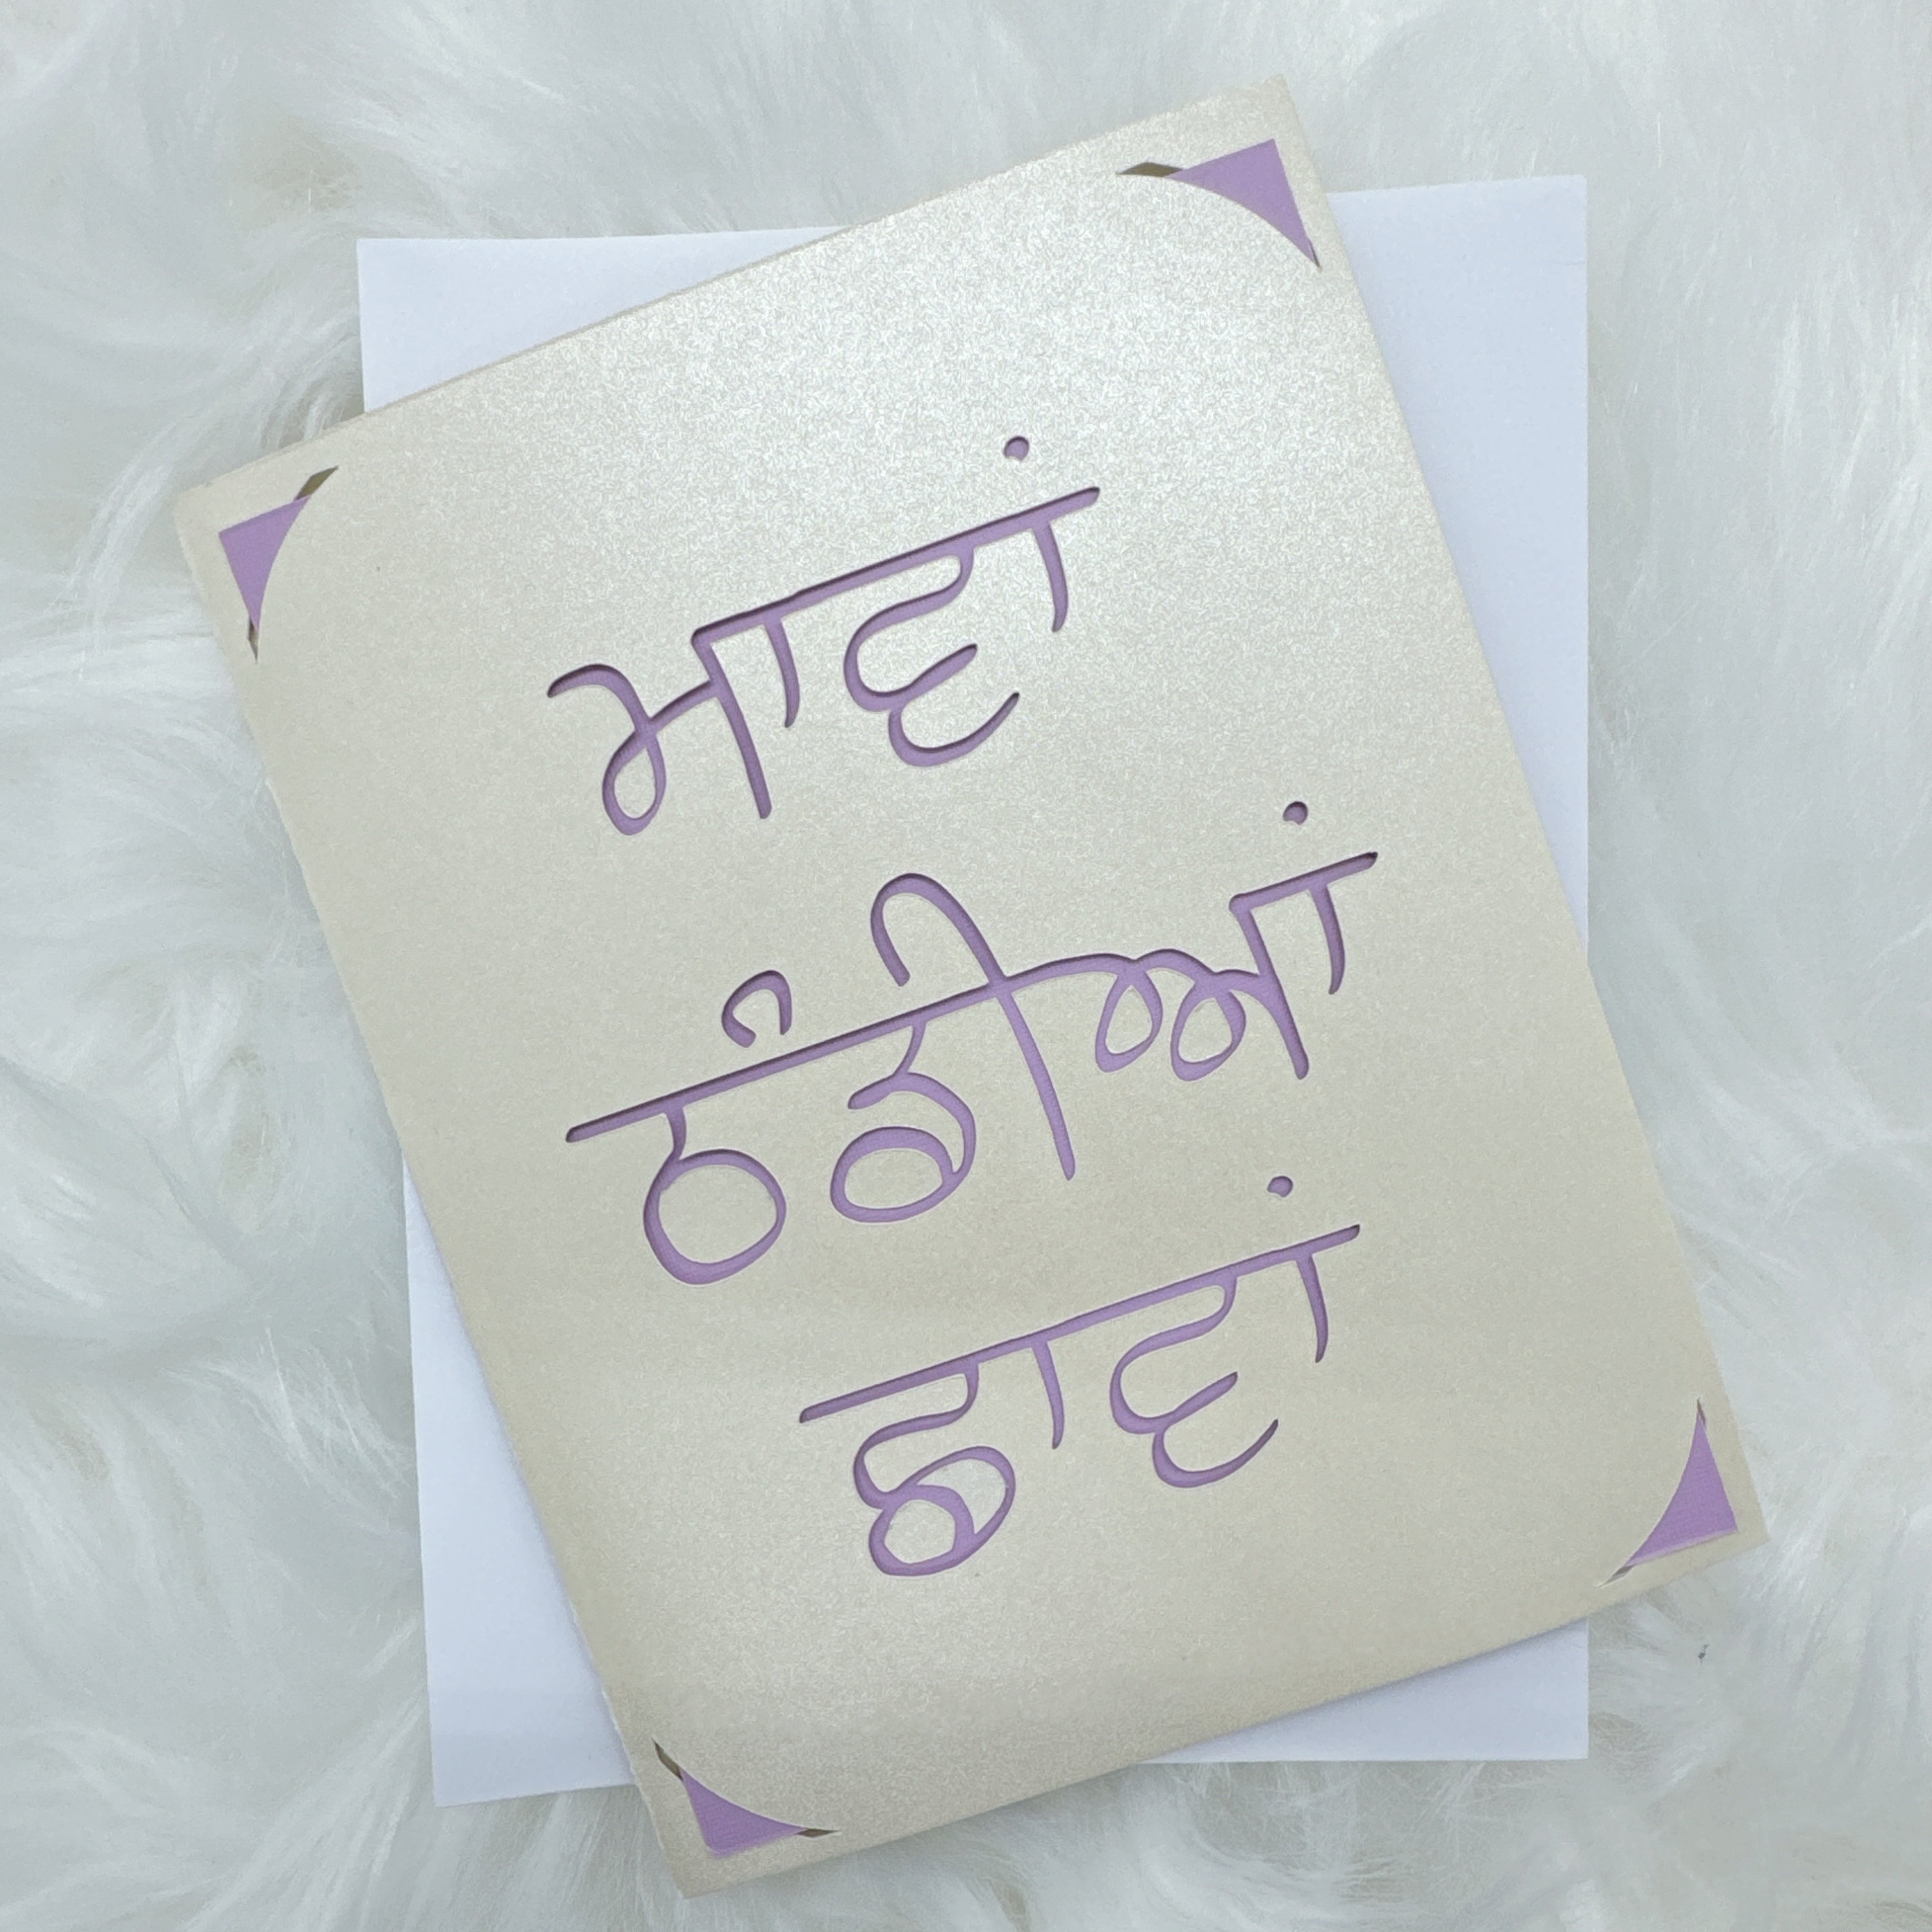 ਮਾਵਾਂ
ਠੰਡੀਆਂ
ਛਾਵਾਂ